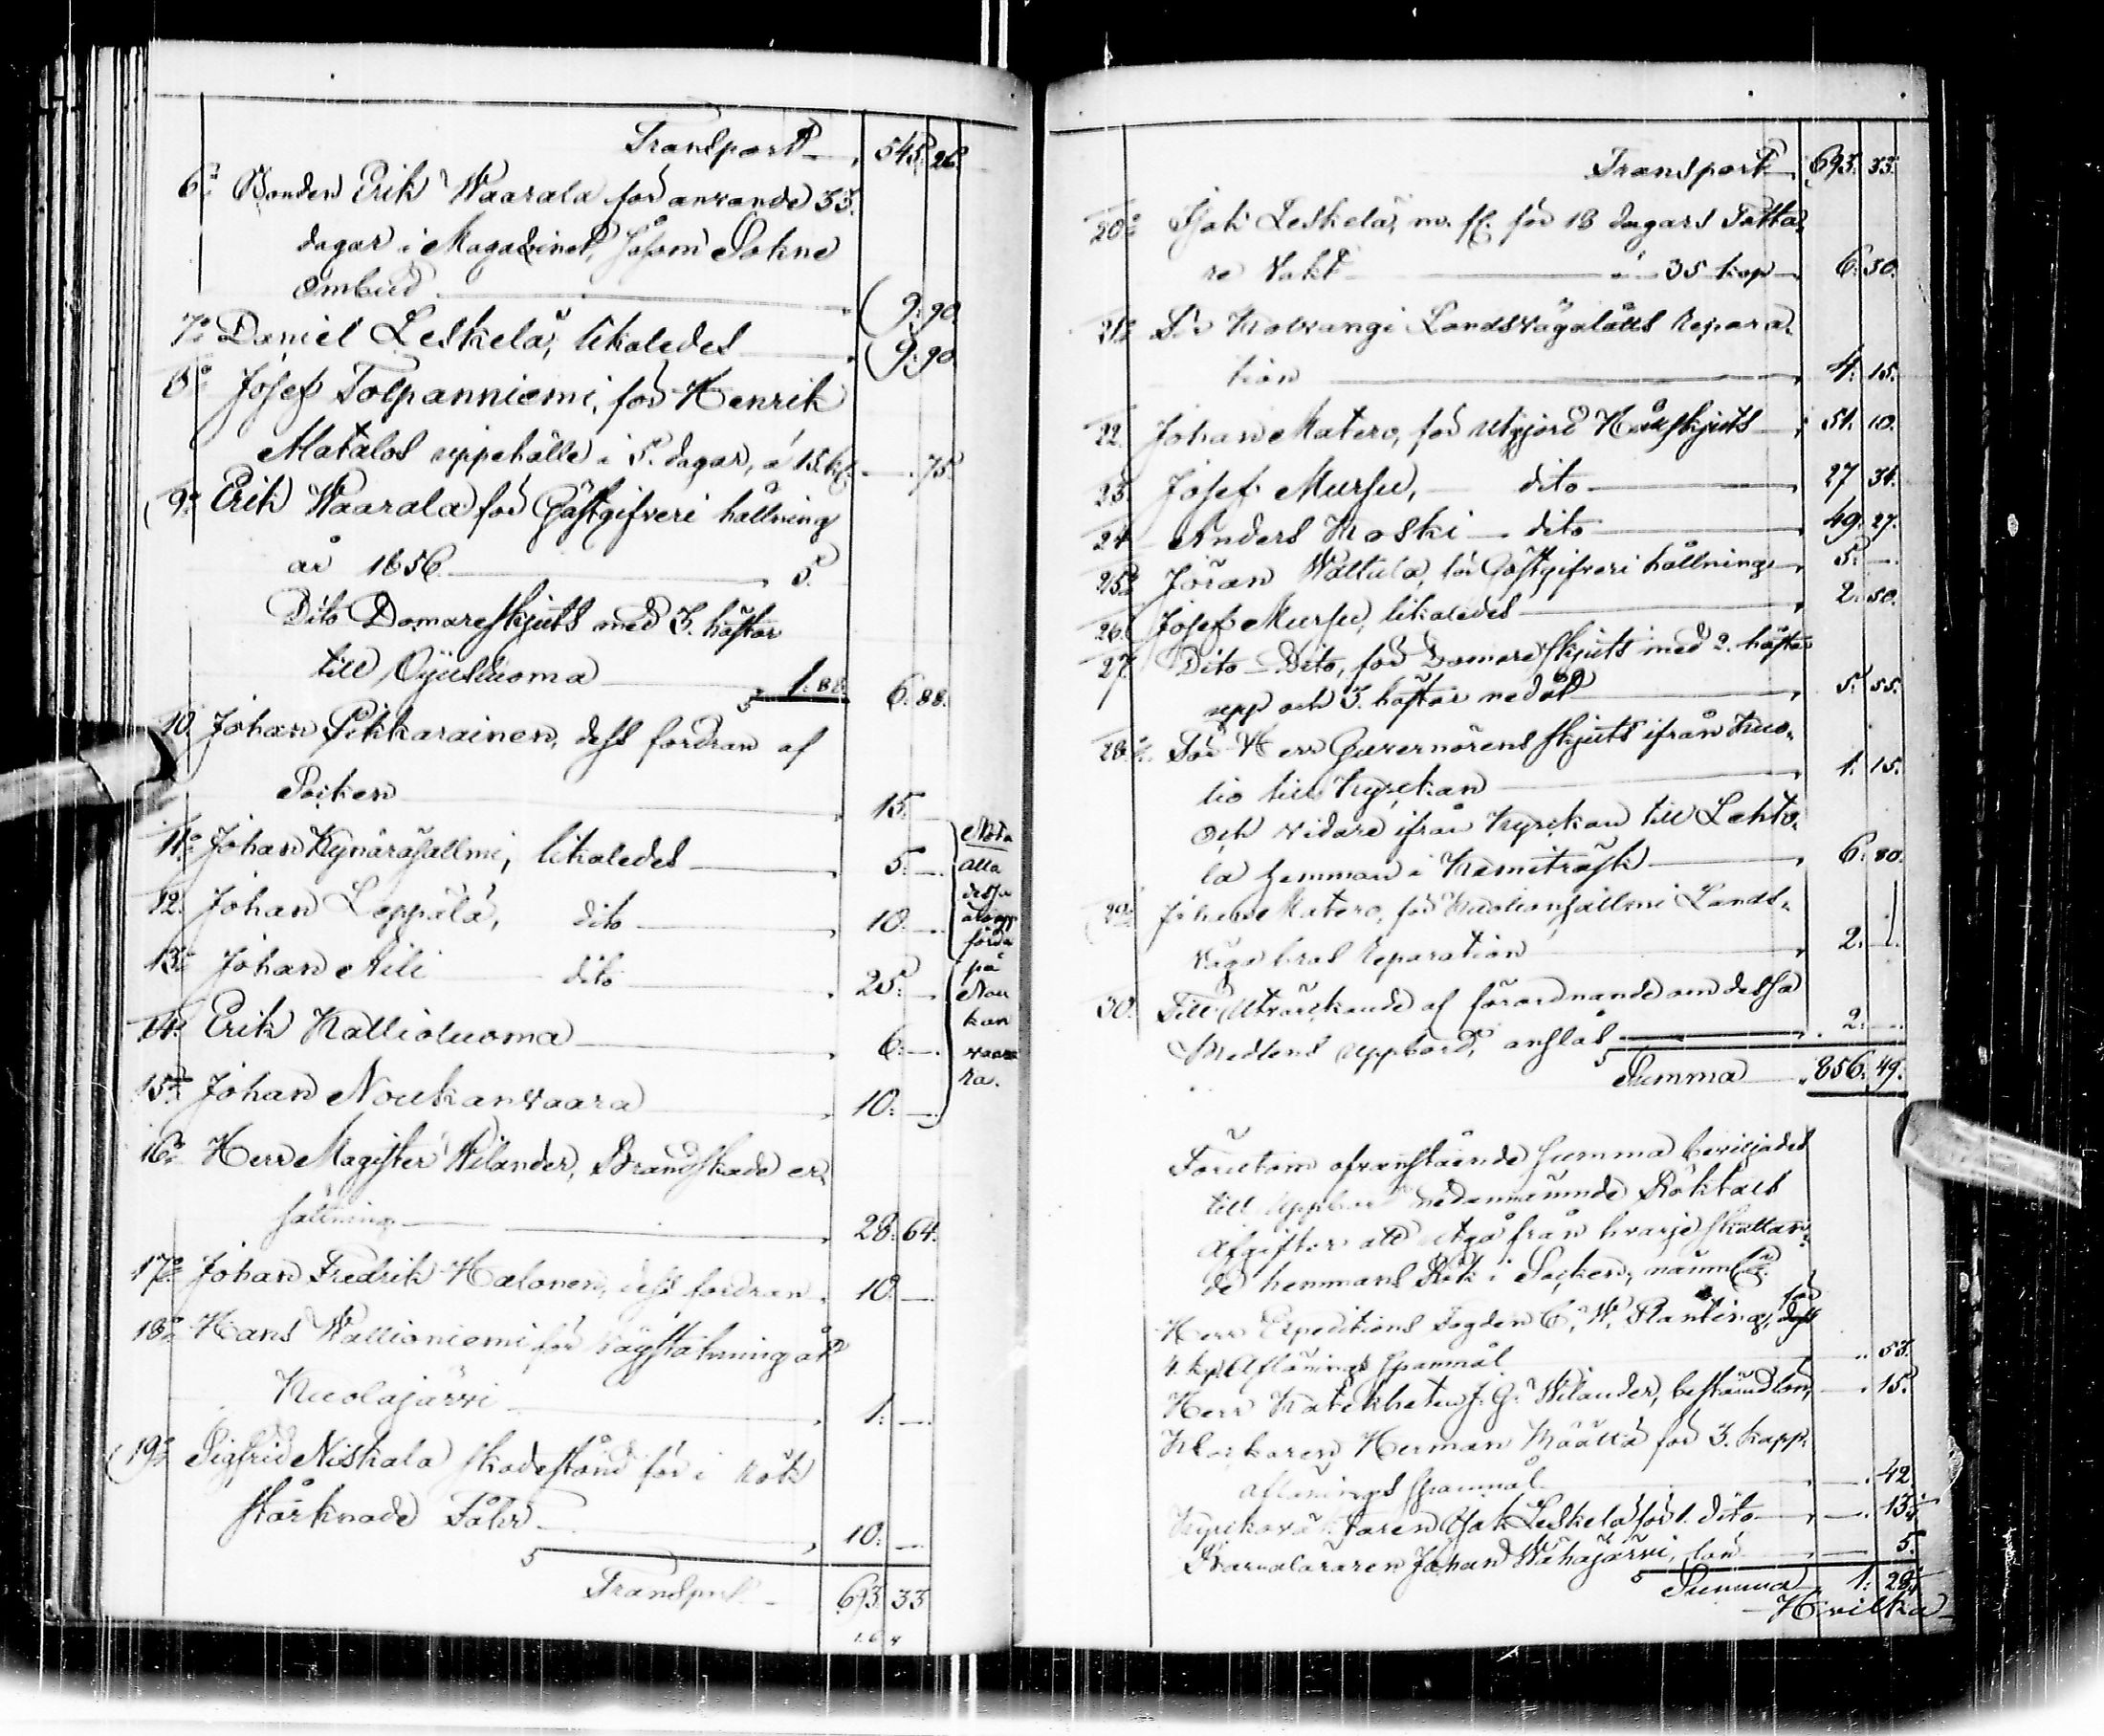 Transport 545. 26.
6:o Bonden Erik Waarala för använde 33.
dagar i Magazinet, såsom Sokne
ombud 9. 90.
7:o Daniel Leskelä, likaledes 9. 90.
8:o Josef Tolpanniemi, för Henrik
Matalos uppehälle i 5. dagar, á 15 k. 75.
9:o Erik Waarala för Gästgifveri hållning
år 1856 5.
Dito Domareskjuts med 3. hästar
till Oijusluoma 1. 88. 6. 88.
10. Johan Pikkarainen, dess fordran af
Socken 15.
11:o Johan Kynäräsallmi, likaledes 5. —
12. Johan Leppälä, dito 10. —
13:o Johan Aili dito 25. —
14. Erik Kallioluoma 6. —
15:o Johan Noukanvaara 10. —
Nota
alla
dessa
förda
på
Nou
kan
vaara
ra.
16:o Herr Magister Wilander, Brandskade er-
sättning 28. 64.
17:o Johan Fredrik Halonen, dess fordran 10. —
18:o Hans Wallioniemi för vägstakning åt
Kuolajärvi 1. —
19:o Sigfrid Niskala skadestånd för i rök
storknade Fåhr 10. —
Transport 693. 33
Transport 693. 33.
20:o Isak Leskelä, m. fl. för 18 dagars Tatta-
re Vakt á 35 kop 6. 30.
21:o För Kolvangi Landsvägalätts repara-
tion 4. 15.
22. Johan Matero, för utgjord Hållskjuts 51. 10.
23. Josef Mursu, dito 27 31.
24 Anders Koski dito 49. 27.
25:o Jöran Wältula, för Gästgifveri hållning 5. —
26. Josef Mursu, likaledes 2. 50.
27. Dito Dito, för Domare skjuts med 2. hästar
upp och 3. hästar nedåt 5. 55.
28:o För Herr Guvernörens skjuts ifrån Kuo-
lio till Kyrckan 1. 15.
och vidare ifrån Kyrckan till Lehto-
la hemman i Kemiträsk 6. 80.
29:o Johan Matero, för Kuolionsallmi Lands-
väga bros reparation 2. —
30. Till utvärckande af förordnande om dessa
Medlens uppbörd, anslås 2. —
Summa 856. 49.
Förutom ofvanstående summa beviljades
till uppbörd nedannämnde Röktals
Afgifter att utgå från hvarje skattan-
de hemmans Rök i Socken, nämnl.
Herr Expeditions Fogden C. W. Planting, för dess
4. kp. Aflönings spannmål 53.
Herr Katekheten J. G. Wilander, bestämd lön, 15.
Klockaren Herman Määttä för 3. kapp.
aflönings spannmål 42
Kyrkovächtaren Isak Leskelä för 1. dito 13
Barnaläraren Johan Wahajärvi, lön 5.
Summa 1. 28
Hvilka